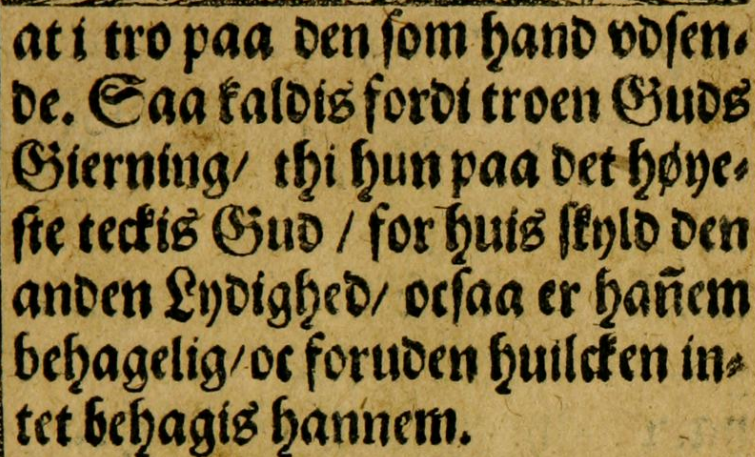 at i tro paa den som hand vdsen⸗
de. Saa kaldis fordi troen Guds
Gierning/ thi hun paa det høye⸗
ste teckis Gud / for huis skyld den
anden Lydighed/ ocsaa er hañem
behagelig/ oc foruden huilcken in⸗
tet behagis hannem.